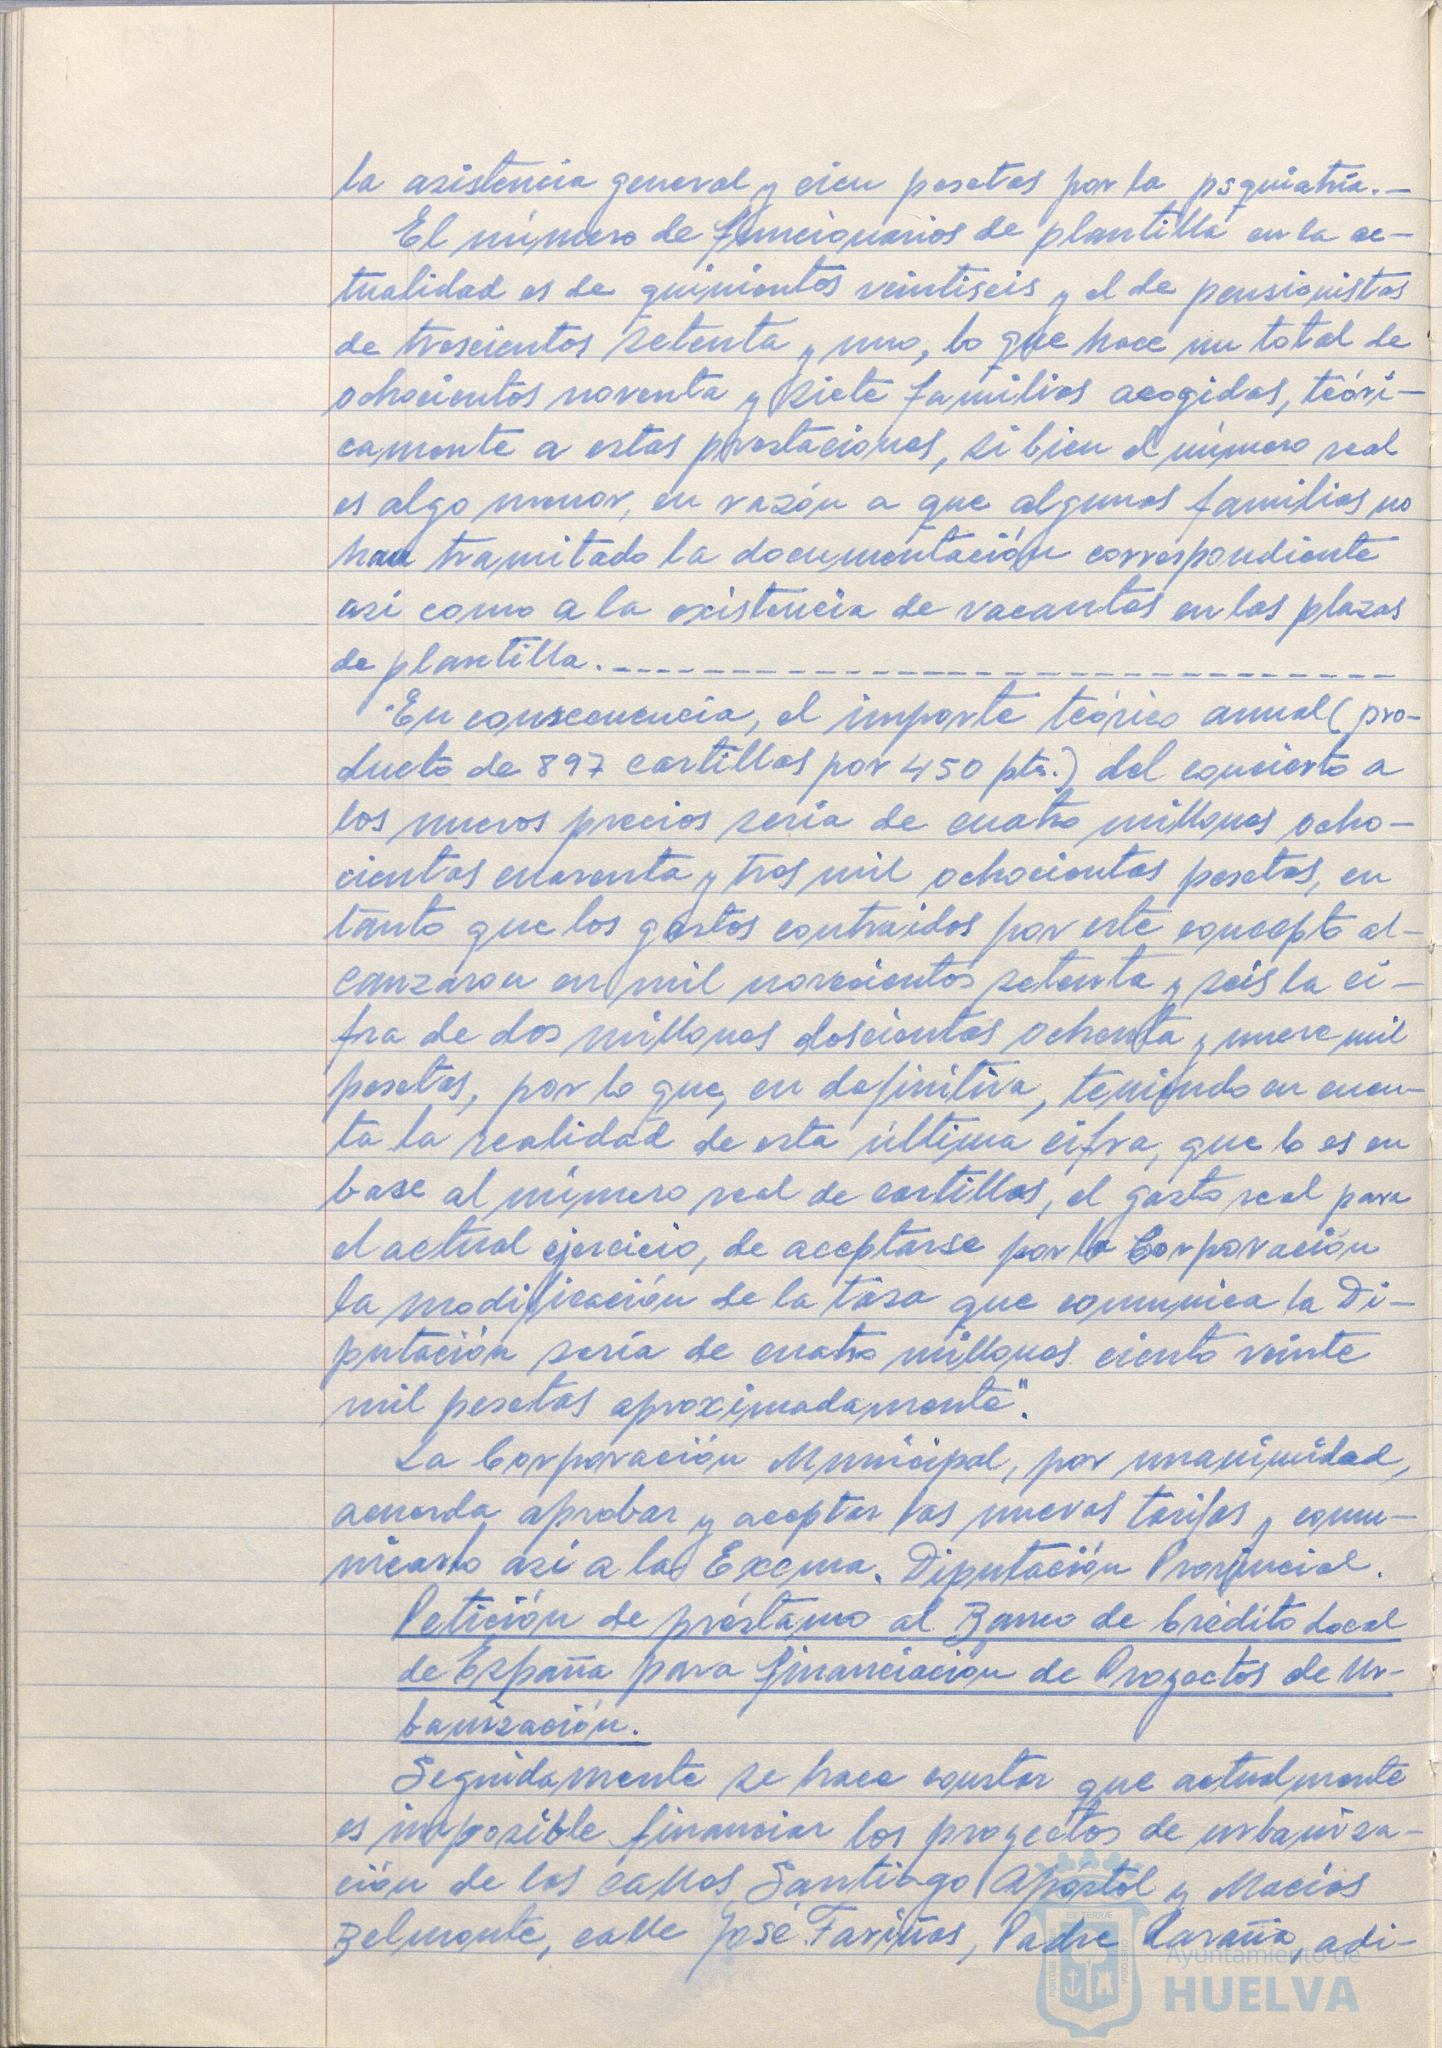 la asistencia general y cien pesetas por la psquiatría.-
El número de funcionarios de plantilla en la ac-
tualidad es de quinientos veintiseis y el de pensionistas
de trescientos setenta y uno, lo que hace un total de
ochocientos noventa y siete familias acogidas, teóri-
camente a estas prestaciones, si bien el número real
es algo menor, en razón a que algunas familias no
han tramitado la documentación correspondiente
asi como a la existencia de vacantes en las plazas
de plantilla. - - - - - - - - - - - - - - - - - - - - - - -
"En consecuencia, el importe teórico anual (pro-
ducto de 897 cartillas por 450 pts.) del concierto a
los nuevos precios seria de cuatro millones ocho-
cientas cuarenta y tres mil ochocientas pesetas, en
tanto que los gastos contraidos por este concepto al-
canzaron en mil novecientos setenta y seis la ci-
fra de dos millones doscientas ochenta y nueve mil
pesetas, por lo que, en definitiva, teniendo en cuen-
ta la realidad de esta última cifra, que lo es en
base al número real de cartillas, el gasto real para
el actual ejercicio, de aceptarse por la Corporación
la modificación de la tasa que comunica la Di-
putación sería de cuatro millones ciento veinte
mil pesetas aproximadamente".
La Corporación Municipal, por unanimidad,
acuerda aprobar y aceptar las nuevas tarifas y comu-
nicarlo asi a la Excma. Diputación Provincial.
Petición de préstamo al Banco de Crédito Local
de España para financiación de Proyectos de Ur-
banización.
Seguidamente se hace constar que actualmente
es imposible financiar los proyectos de urbaniza-
ción de las calles Santiago Apóstol y Macias
Belmonte, calle José Fariñas, Padre Laraña, adi-
Ayuntamiento de
HUELVA